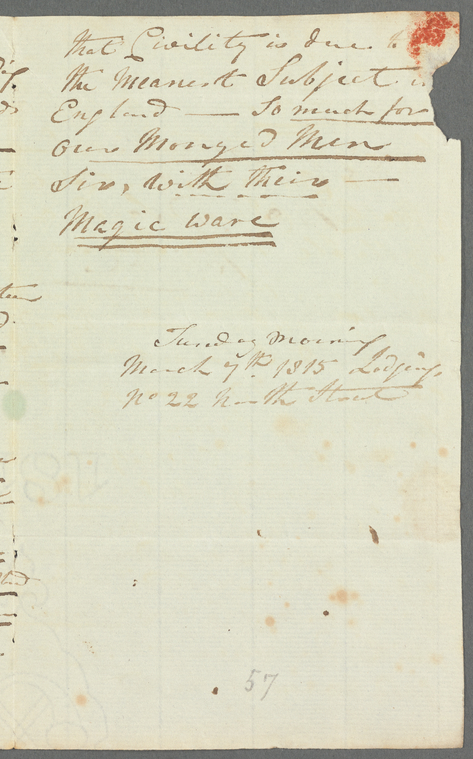 that Civility is due
the Meanest Subject
England — So much for
Our Monyed Men
Sir, with their —
Magic Ware
Tuesday Morning
March 7th 1815 Lodging
No 22 North Street
57